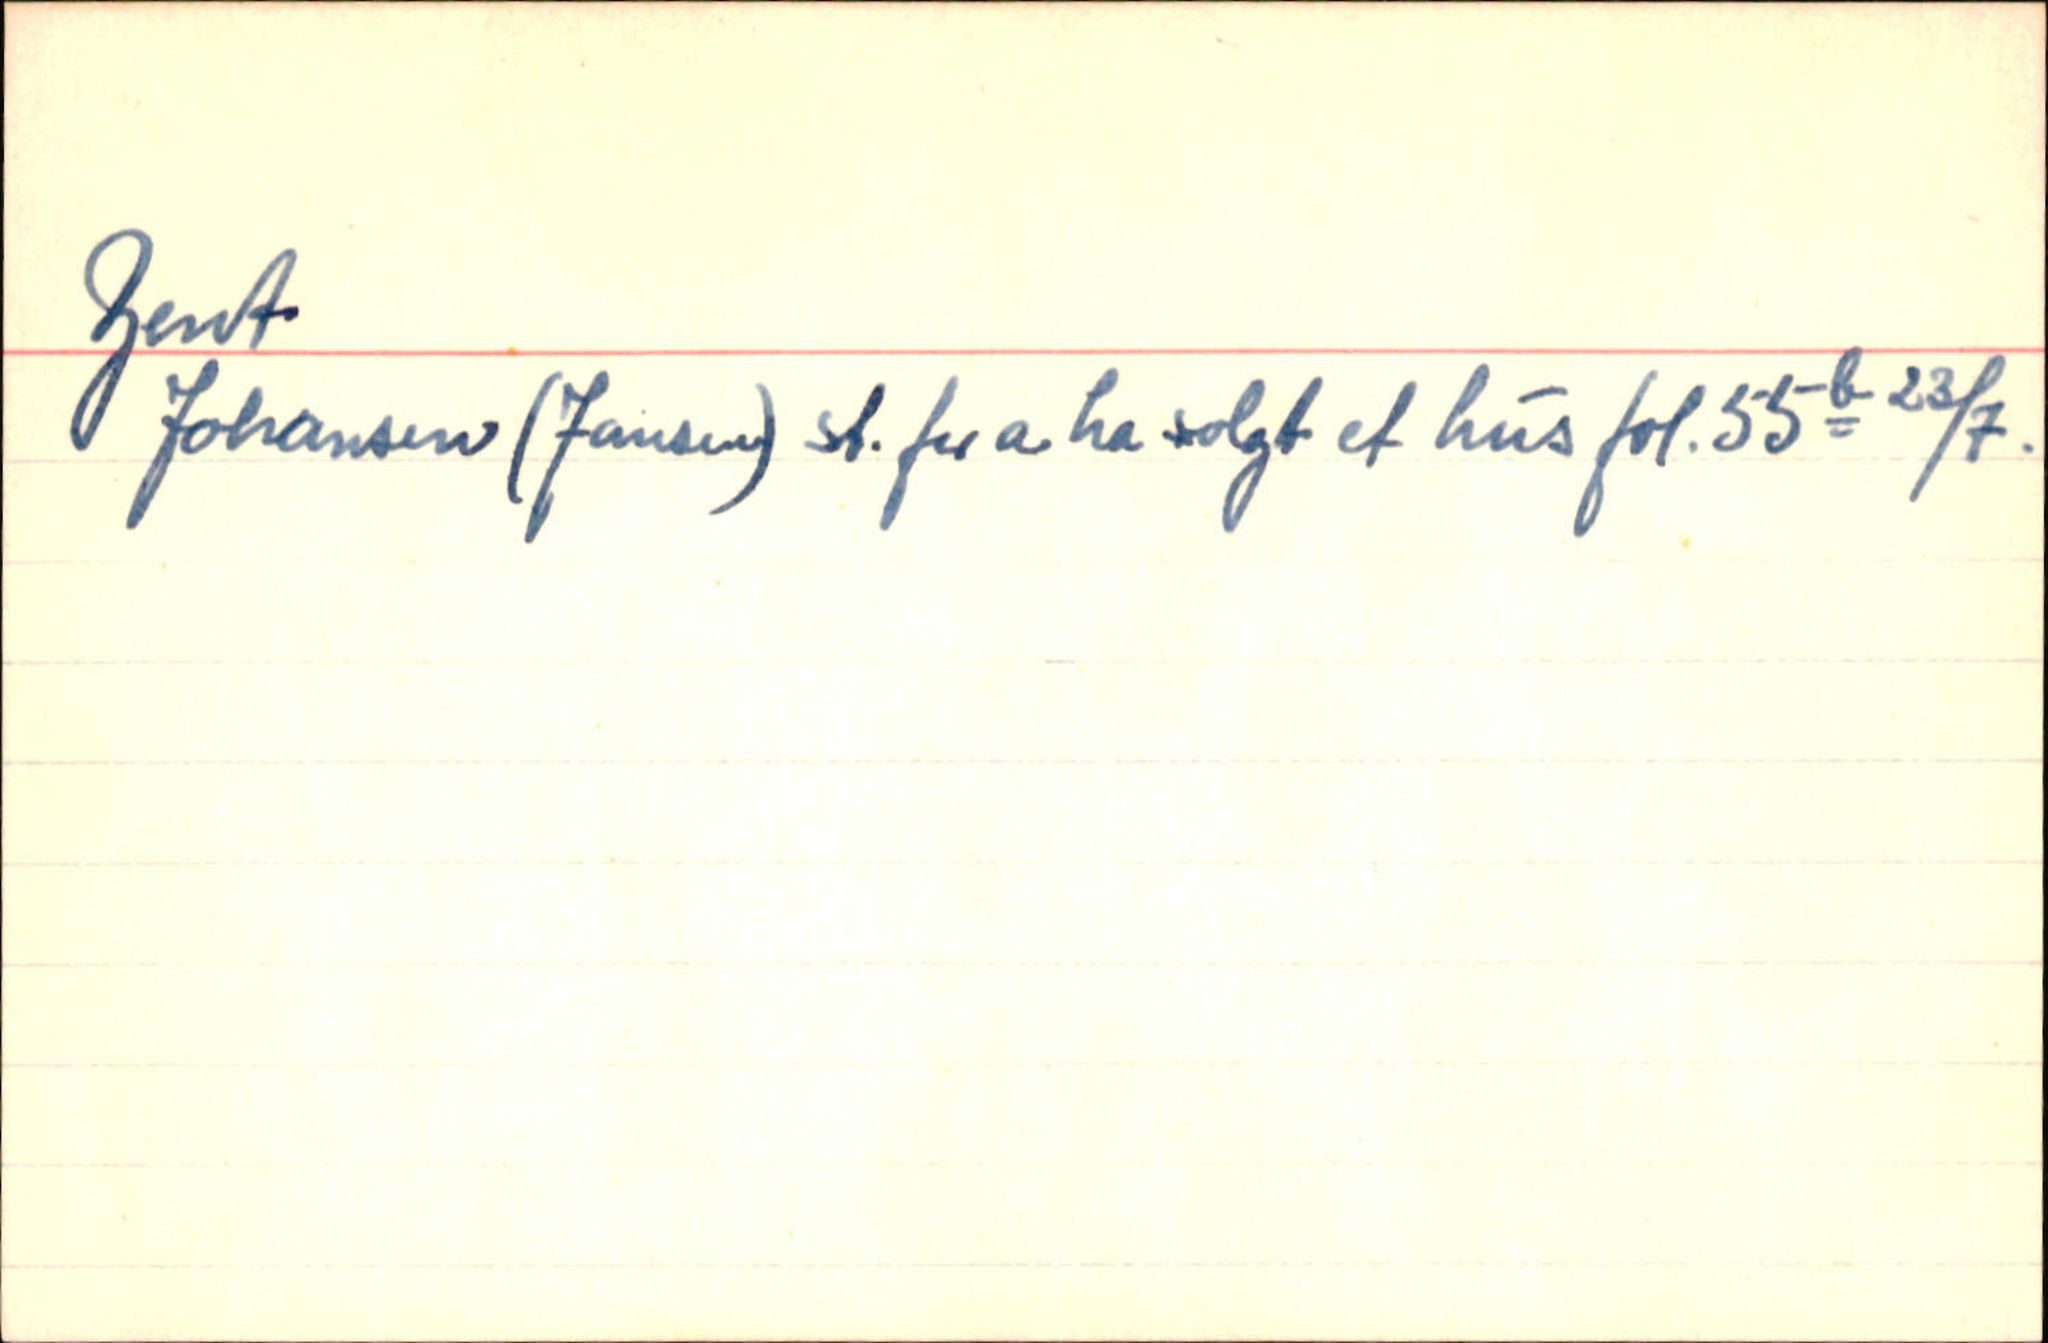 Zent
Johansen (Jansen) st. for a ha solgt et hus fol. 55 b 23/7.